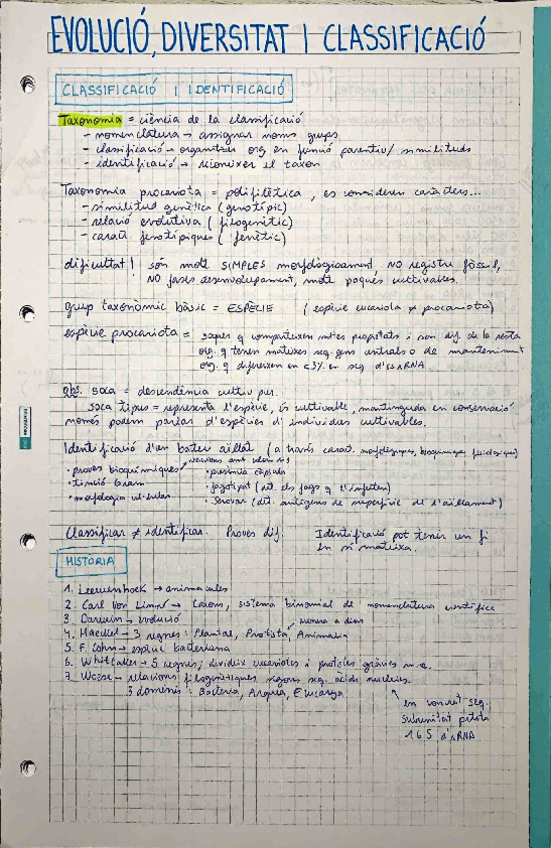 EVOLUCIÓ, DIVERSITAT I CLASSIFICACIÓ
CLASSIFICACIÓ I IDENTIFICACIÓ
Taxonomia = ciència de la classificació
- nomenclatura → assignar noms grups
- classificació → organitzar org en funció parentiu/ similituds
- identificació → reconeixer el taxon
Taxonomia procariota = polifilètica, es consideren caràcters...
- similitud genètica (genotípic)
- relació evolutiva (filogenètic)
- caract. fenotípiques (fenètic)
dificultat! són molt SIMPLES morfològicament, NO registre fòssil,
NO fases desenvolupament, molt poques cultivables.
grup taxonòmic bàsic = ESPÈCIE (espècie eucariota ≠ procariota)
espècie procariota = soques q comparteixen moltes propietats i son dif. de la resta
org. q tenen mateixes seq. gens centrals o de manteniment
org. q difereixen en <3% en seq d'rRNA
obs. soca = descendència cultiu pur.
soca tipus = representa l'espècie, és cultivable, mantinguda en conservació
només podem parlar d'espècies d'individus cultivables.
Identificació d'un bacteri aïllat (a través caract. morfològiques, bioquímiques, fisiològiques)
• proves bioquímiques • presència càpsula
• tinció Gram • fagotipat (det. els fags q l'infecten)
• morfologia cel·lular • Serovar (det. antígens de superfície de l'aïllament)
Classificar ≠ identificar. Proves dif. Identificació pot tenir un fi
en si mateixa.
HISTÒRIA
1. Leeuwenhoek → animacules
2. Carl Von Linné → taxons, sistema binomial de nomenclatura científica
3. Darwin → evolució
4. Haeckel → 3 regnes: Plantae, Protista, Animalia
5. F. Cohn → espècie bacteriana
6. Whittaker → 5 regnes, divideix eucariotes i procariotes
7. Woese → relacions filogenètiques segons seq. àcids nucleics.
3 dominis: Bacteria, Arquea, Eucarya
en concret seq.
subunitat petita
16S d'rRNA